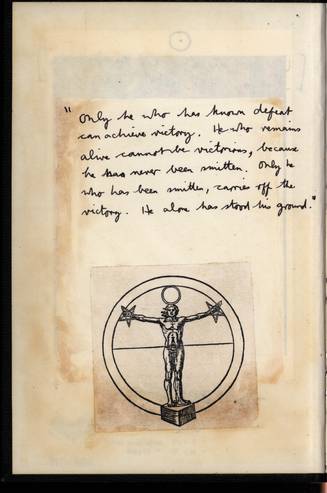 " Only he who has known defeat
can achieve victory. He who remains
alive cannot be victorious, because
he has never been smitten. Only he
who has been smitten, carries off the
victory. He alone has stood his ground."